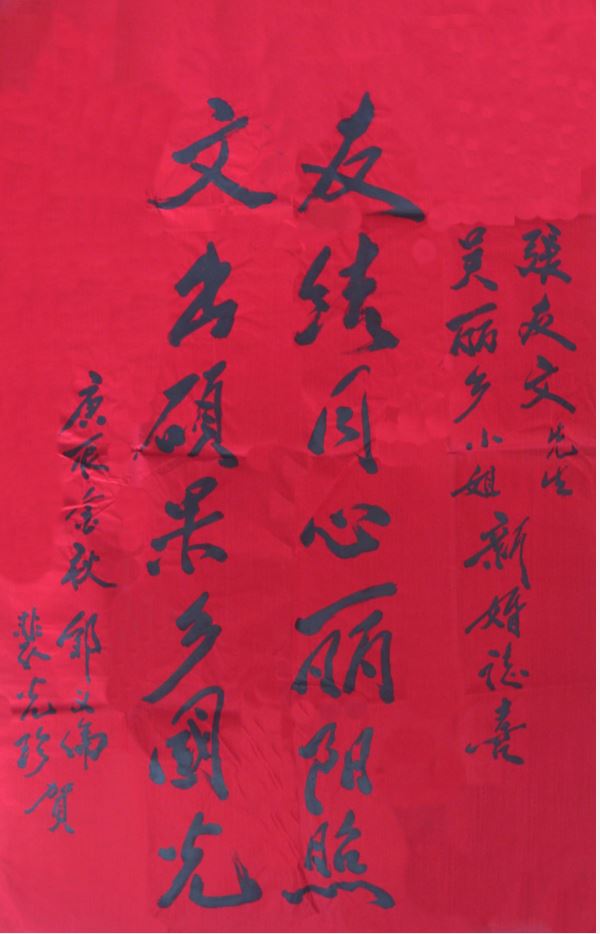 張友文先生
吴丽乡小姐
新婚誌喜
友结同心丽阳照
文出硕果乡國光
庚辰金秋
邹文倫
裴光珍賀